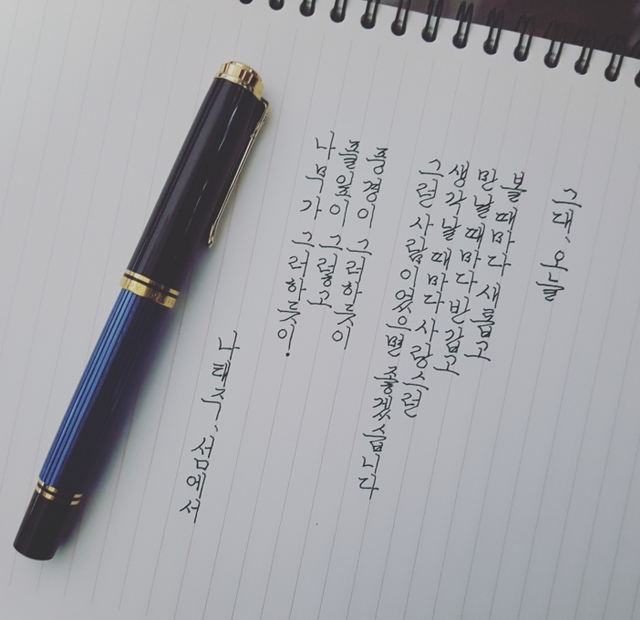 그대, 오늘
볼 때마다 새롭고
만날 때마다 반갑고
생각날 때마다 사랑스런
그런 사람이었으면 좋겠습니다
풍경이 그러하듯이
풀잎이 그렇고
나무가 그러하듯이.
나태주, 섬에서